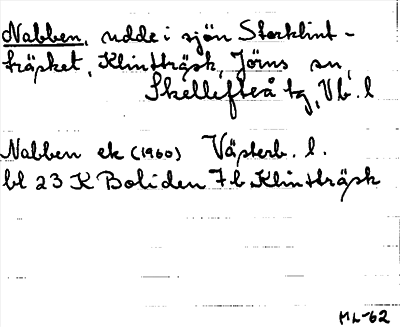 Nabben, udde i sjön Storklint-
träsket, Klintträsk, Jörns sn,
Skellefteå tg, Vb. l
Nabben ek (1960) Västerb. l.
bl 23 K Boliden 7b Klintträsk
ML-62